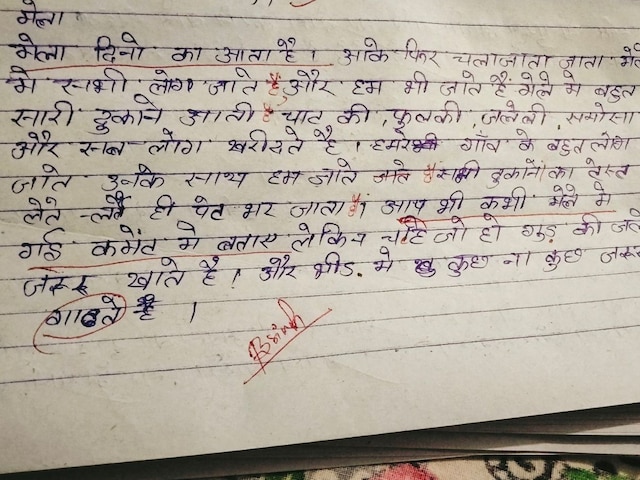 मेला
मेला दिनो का आता है। आके फिर चलाजाता जाता मेले
मे सभी लोग जाते है और हम भी जाते है मेले मे बहुत
सारी दुकाने आती है चाट की, फुलकी, जलेबी, समोसा
और सब लोग खरीदते है। हमारे गाँव के बहुत लोग
जाते उनके साथ हम जाते जाते है सभी दुकानो का टेस्ट
लेते - लेते ही पेट भर जाता है। आप भी कभी मेले मे
गई कमेंट मे बताए लेकिन चाहे जो हो गुड की जले
जरूर खाते है। और भीड मे कुछ ना कुछ जरूर
गावते है।